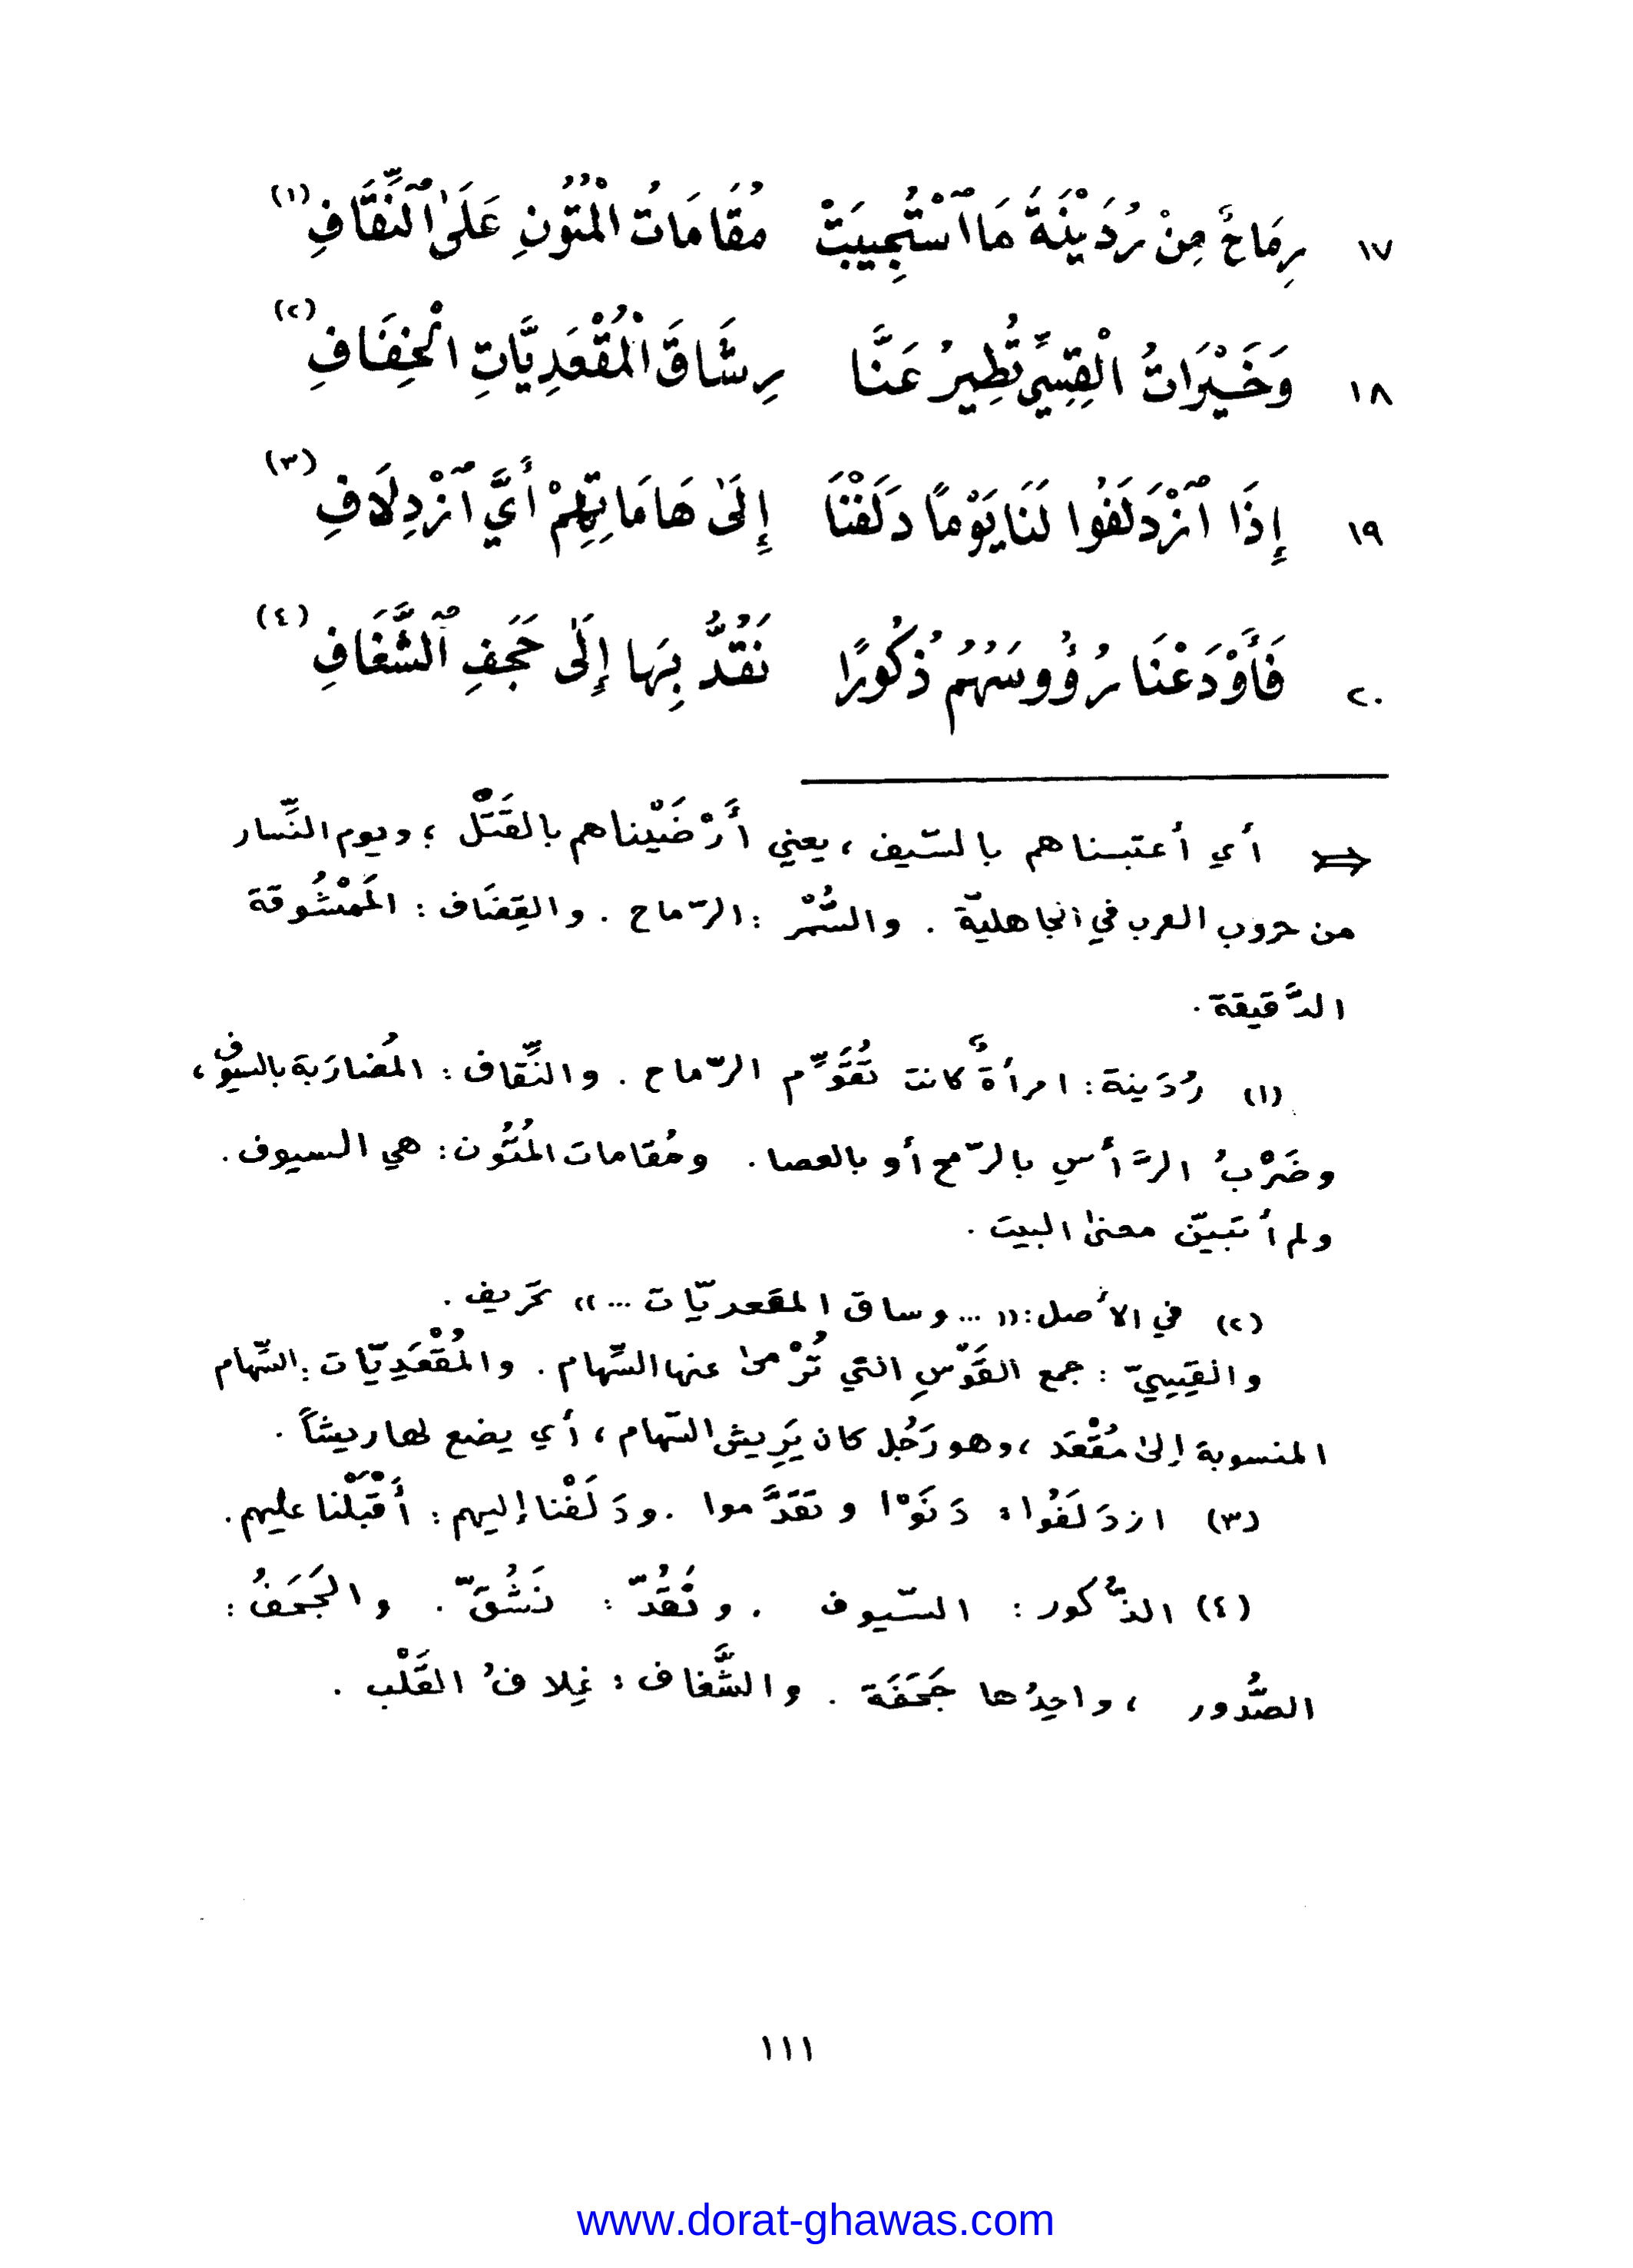 ١٧ رِمَاحٌ مِنْ رُدَيْنَةُ مَا ٱسْتُجِيبَتْ مُقَامَاتُ الْمُتُونِ عَلَىٰ ٱلنِّقَافِ (١)
١٨ وَخَيْرَاتُ الْقِسِيِّ تُطِيرُ عَنَّا رِشَاقَ الْمُقْعَدِيَّاتِ الْخِفَافِ (٢)
١٩ إِذَا ٱزْدَلَفُوا لَنَا يَوْمًا دَلَفْنَا إِلَىٰ هَامَاتِهِمْ أَيَّ ٱزْدِلَافِ (٣)
٢٠ فَأَوْدَعْنَا رُؤُوسَهُمُ ذُكُورًا نَقُدُّ بِهَا إِلَىٰ حَجَفِ ٱلشَّغَافِ (٤)
⇐ أي أعتبناهم بالسّيف ، يعني أَرْضَيْناهم بالقَتْل ؛ ويوم النِّسار
من حروب العرب في الجاهليّة . والسُّمْر : الرّماح . والقِضَاف : المَمْشُوقة
الدَّقيقة .
(١) رُدَينة : امرأةٌ كانت تُقَوِّم الرّماح . والنِّقاف : المُضارَبة بالسيوف ،
وضَرْبُ الرَّأس بالرّمح أو بالعصا . ومُقامات المُتُون : هي السيوف .
ولم أتبيّن معنىٰ البيت .
(٢) في الأصل : (( ... وساق المقعديّات ... )) تحَريف .
والقِسِيّ : جمع القَوْسِ التي تُرْمىٰ عنها السِّهام . والمُقْعَدِيّات : السِّهام
المنسوبة إلىٰ مُقْعَد ، وهو رَجُل كان يَرِيش السّهام ، أي يضع لها ريشاً .
(٣) ازدَلَفُوا : دَنَوْا وتَقَدَّموا . ودَلَفْنا إليهم : أَقْبَلْنا عليهم .
(٤) الذُّكور : السّيوف . ونَقُدّ : نَشُقّ . والحَجَفُ :
الصُّدور ، واحِدُها حَجَفَة . والشَّغاف : غِلافُ القَلْب .
١١١
www.dorat-ghawas.com